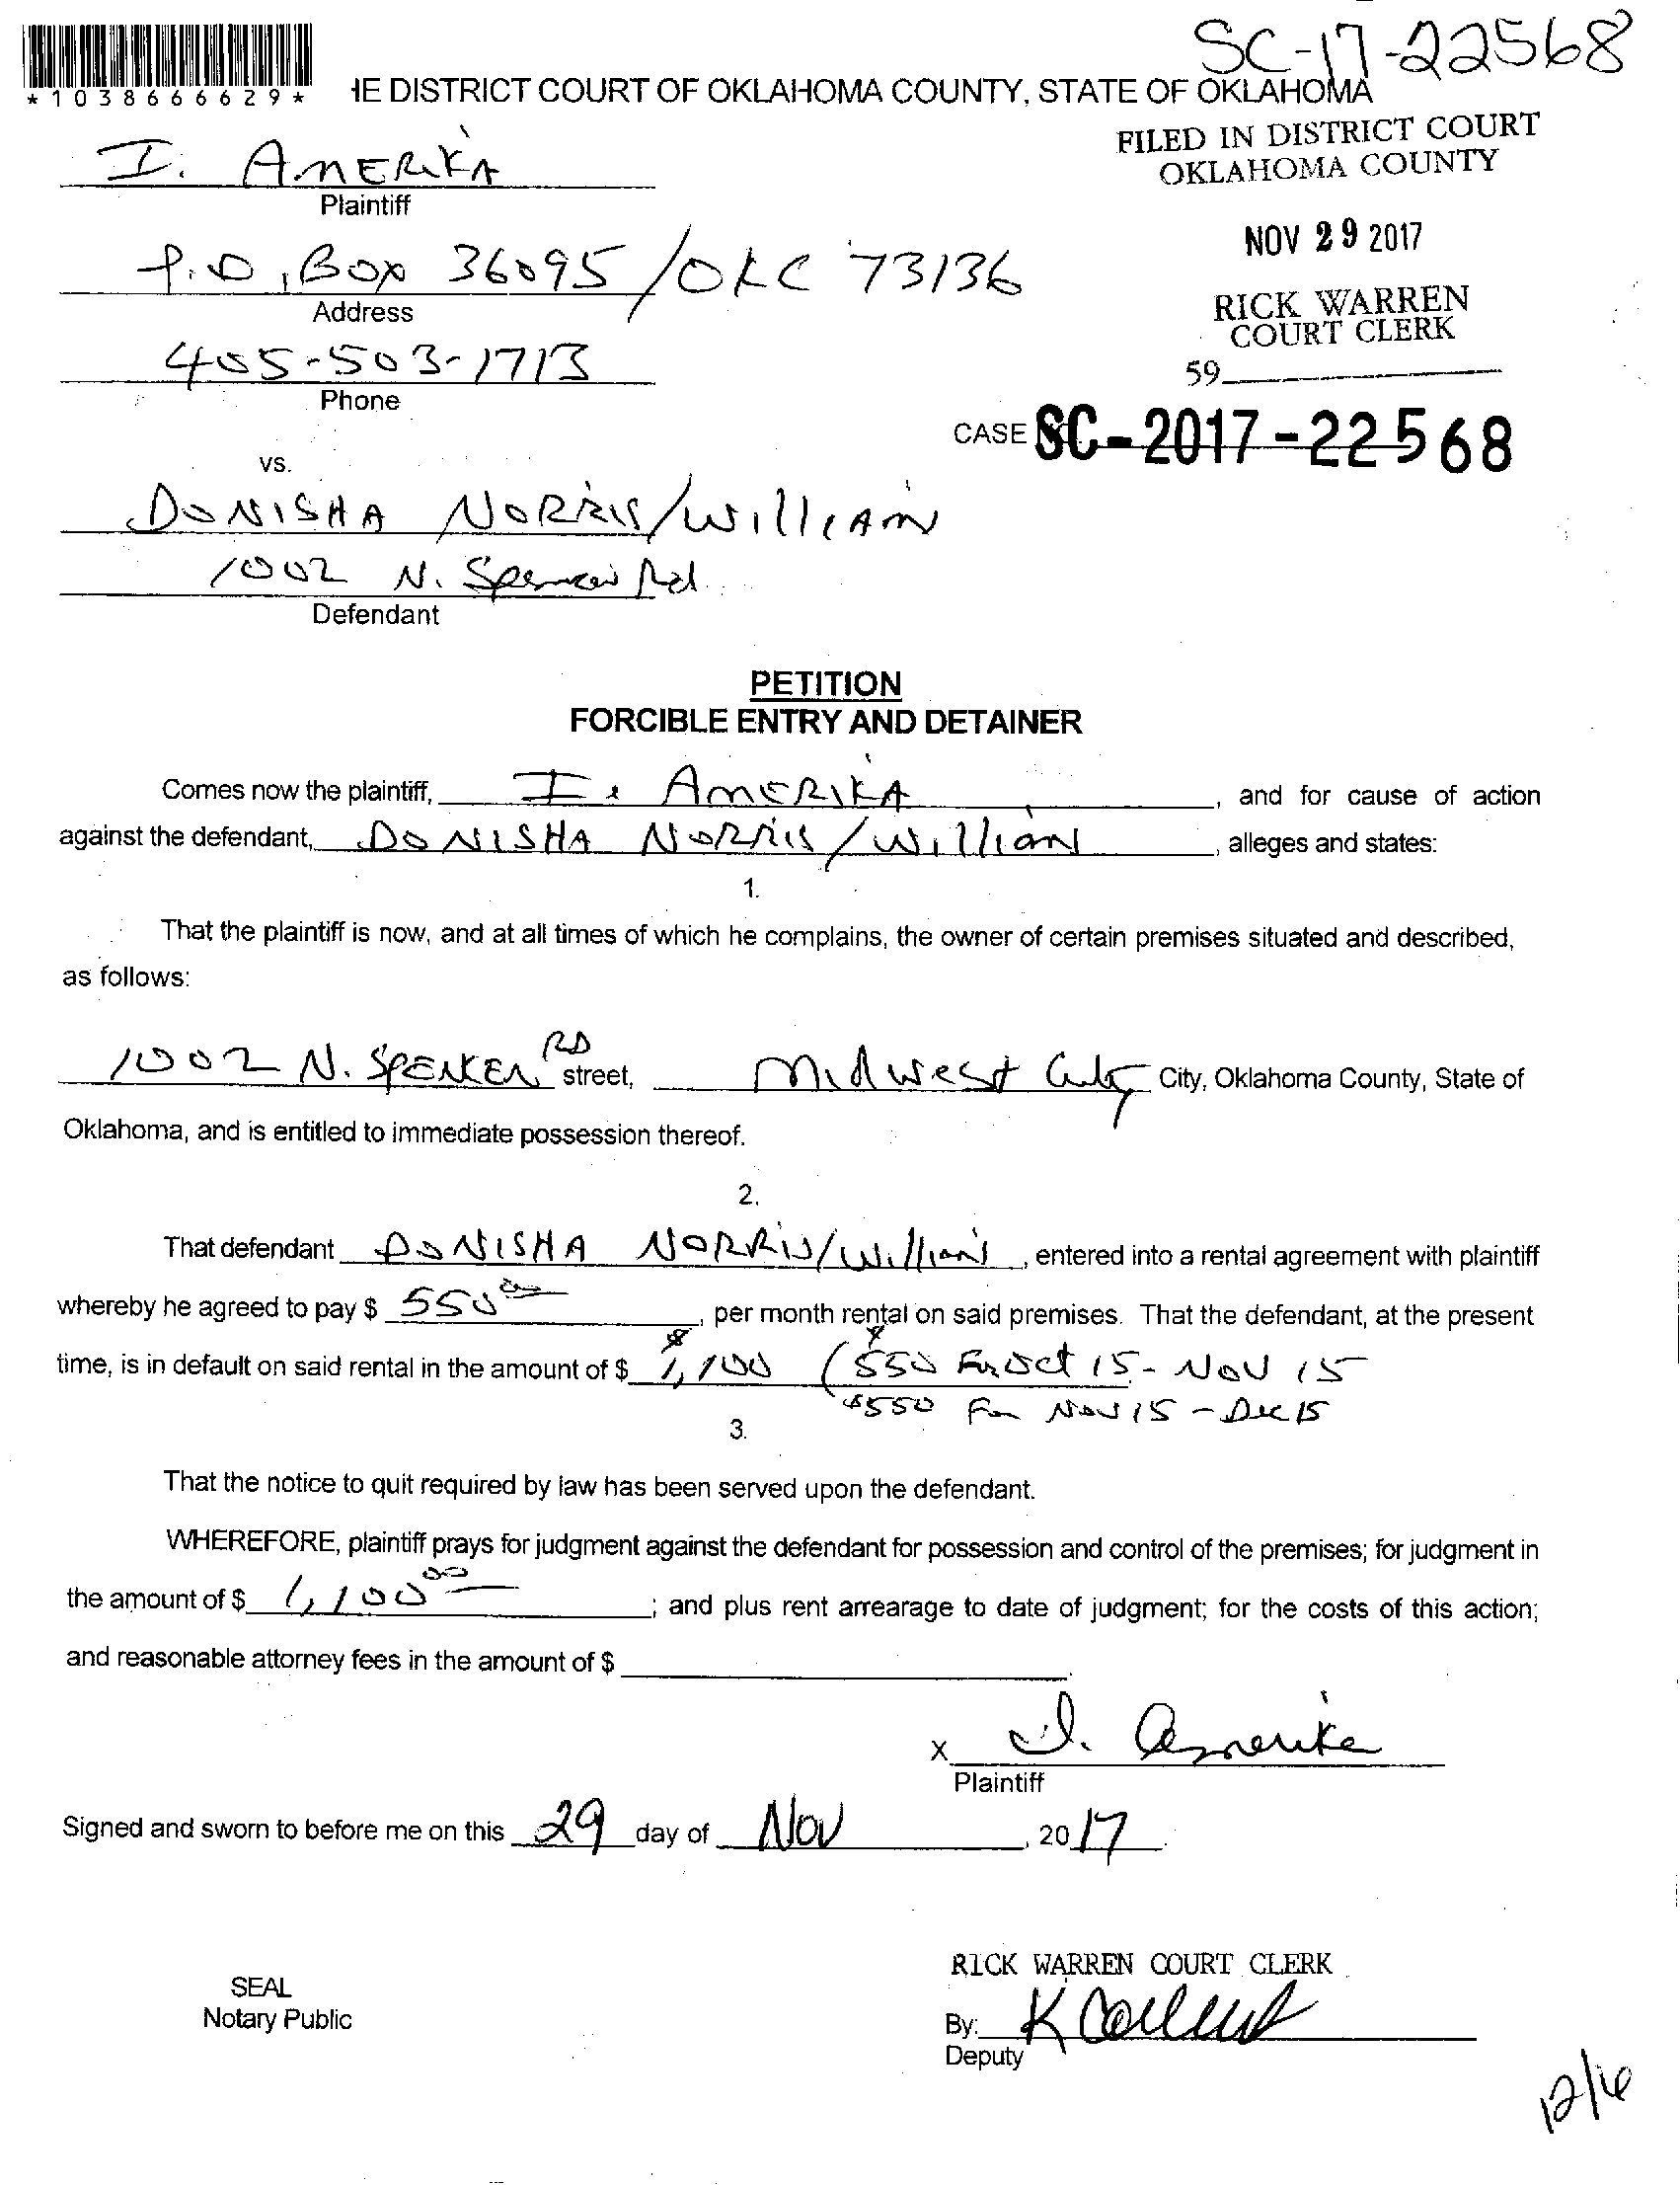 SC-17-22568
*1038666629*
HE DISTRICT COURT OF OKLAHOMA COUNTY, STATE OF OKLAHOMA
FILED IN DISTRICT COURT
OKLAHOMA COUNTY
I. AMERIKA
Plaintiff
NOV 29 2017
P.O, BOX 36095 / OKC 73136
Address
RICK WARREN
COURT CLERK
405-503-1713
Phone
59
CASE SC-2017-22568
vs.
DONISHA NORRIS/William
1002 N. Spencer Rd.
Defendant
PETITION
FORCIBLE ENTRY AND DETAINER
Comes now the plaintiff, I. AMERIKA, and for cause of action
against the defendant, DONISHA NORRIS/William, alleges and states:
1.
That the plaintiff is now, and at all times of which he complains, the owner of certain premises situated and described,
as follows:
1002 N. SPENCER RD street, Midwest City City, Oklahoma County, State of
Oklahoma, and is entitled to immediate possession thereof.
2.
That defendant DONISHA NORRIS/William, entered into a rental agreement with plaintiff
whereby he agreed to pay $ 550 00, per month rental on said premises. That the defendant, at the present
time, is in default on said rental in the amount of $ $1,100 ($550 For Oct 15 - NOV 15
$550 For Nov 15 - Dec 15
3.
That the notice to quit required by law has been served upon the defendant.
WHEREFORE, plaintiff prays for judgment against the defendant for possession and control of the premises; for judgment in
the amount of $ 1,100 00; and plus rent arrearage to date of judgment; for the costs of this action;
and reasonable attorney fees in the amount of $
X I. Amerika
Plaintiff
Signed and sworn to before me on this 29 day of Nov, 2017
RICK WARREN COURT CLERK
SEAL
Notary Public
By: K
Deputy
12/6